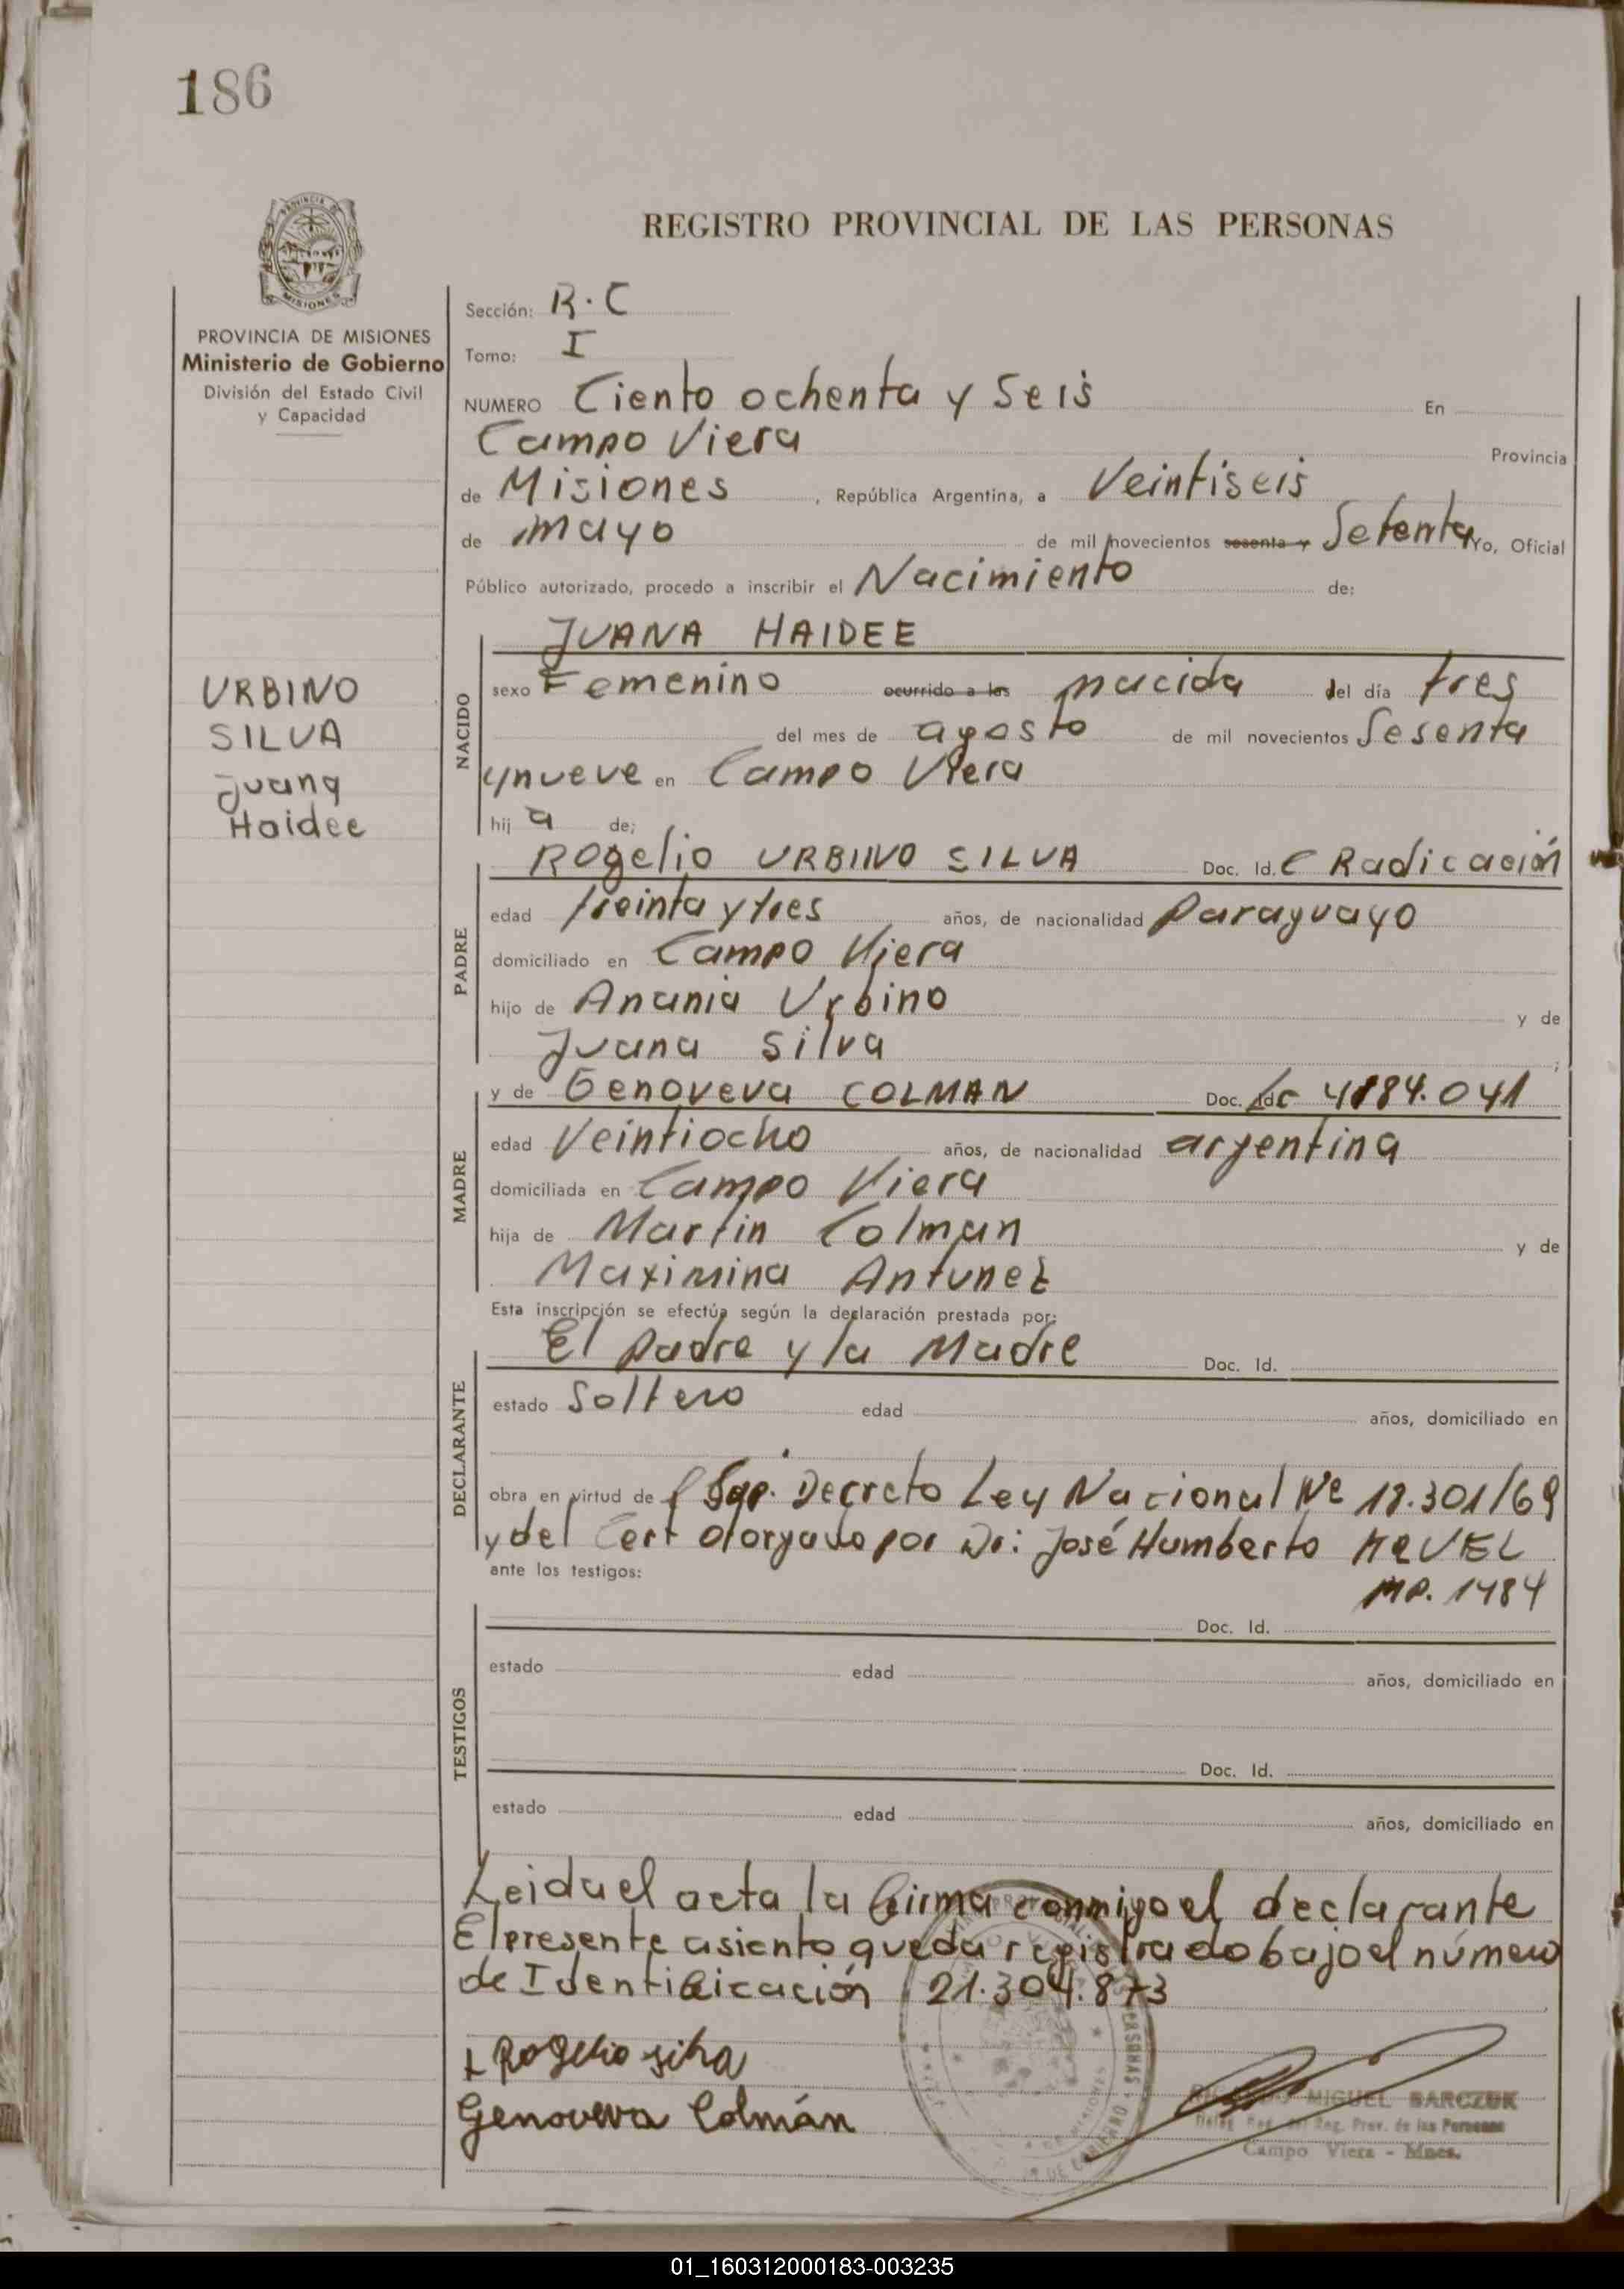 186
REGISTRO PROVINCIAL DE LAS PERSONAS
PROVINCIA DE MISIONES
Ministerio de Gobierno
División del Estado Civil
y Capacidad
URBINO
SILVA
Juana
Haidee
Sección: R.C
Tomo: I
NUMERO Ciento ochenta y Seis En
Campo Viera Provincia
de Misiones, República Argentina, a Veintiseis
de mayo de mil novecientos sesenta y Setenta Yo, Oficial
Público autorizado, procedo a inscribir el Nacimiento de:
NACIDO
JUANA HAIDEE
sexo Femenino ocurrido a las nacida del día tres
del mes de agosto de mil novecientos Sesenta
y nueve en Campo Viera
hija de:
PADRE
Rogelio URBINO SILVA Doc. Id. C Radicación
edad treinta y tres años, de nacionalidad Paraguayo
domiciliado en Campo Viera
hijo de Anania Urbino y de
Juana Silva ;
MADRE
y de Genoveva COLMAN Doc. Id. LC 4184.041
edad Veintiocho años, de nacionalidad argentina
domiciliada en Campo Viera
hija de Martin Colman y de
Maximina Antunez
Esta inscripción se efectúa según la declaración prestada por:
DECLARANTE
El Padre y la Madre Doc. Id.
estado Soltero edad años, domiciliado en
obra en virtud de Sup. Decreto Ley Nacional Nº 18.301/69
y del Cert otorgado por Dr: José Humberto
MP. 1484
ante los testigos:
TESTIGOS
Doc. Id.
estado edad años, domiciliado en
Doc. Id.
estado edad años, domiciliado en
Leida el acta la firma conmigo el declarante
El presente asiento queda registrado bajo el número
de Identificación 21.304.873
Rogelio Silva
Genoveva Colmán
MIGUEL BARCZUK
Reg. Prov. de las Personas
Campo Viera - Mnes.
01_160312000183-003235